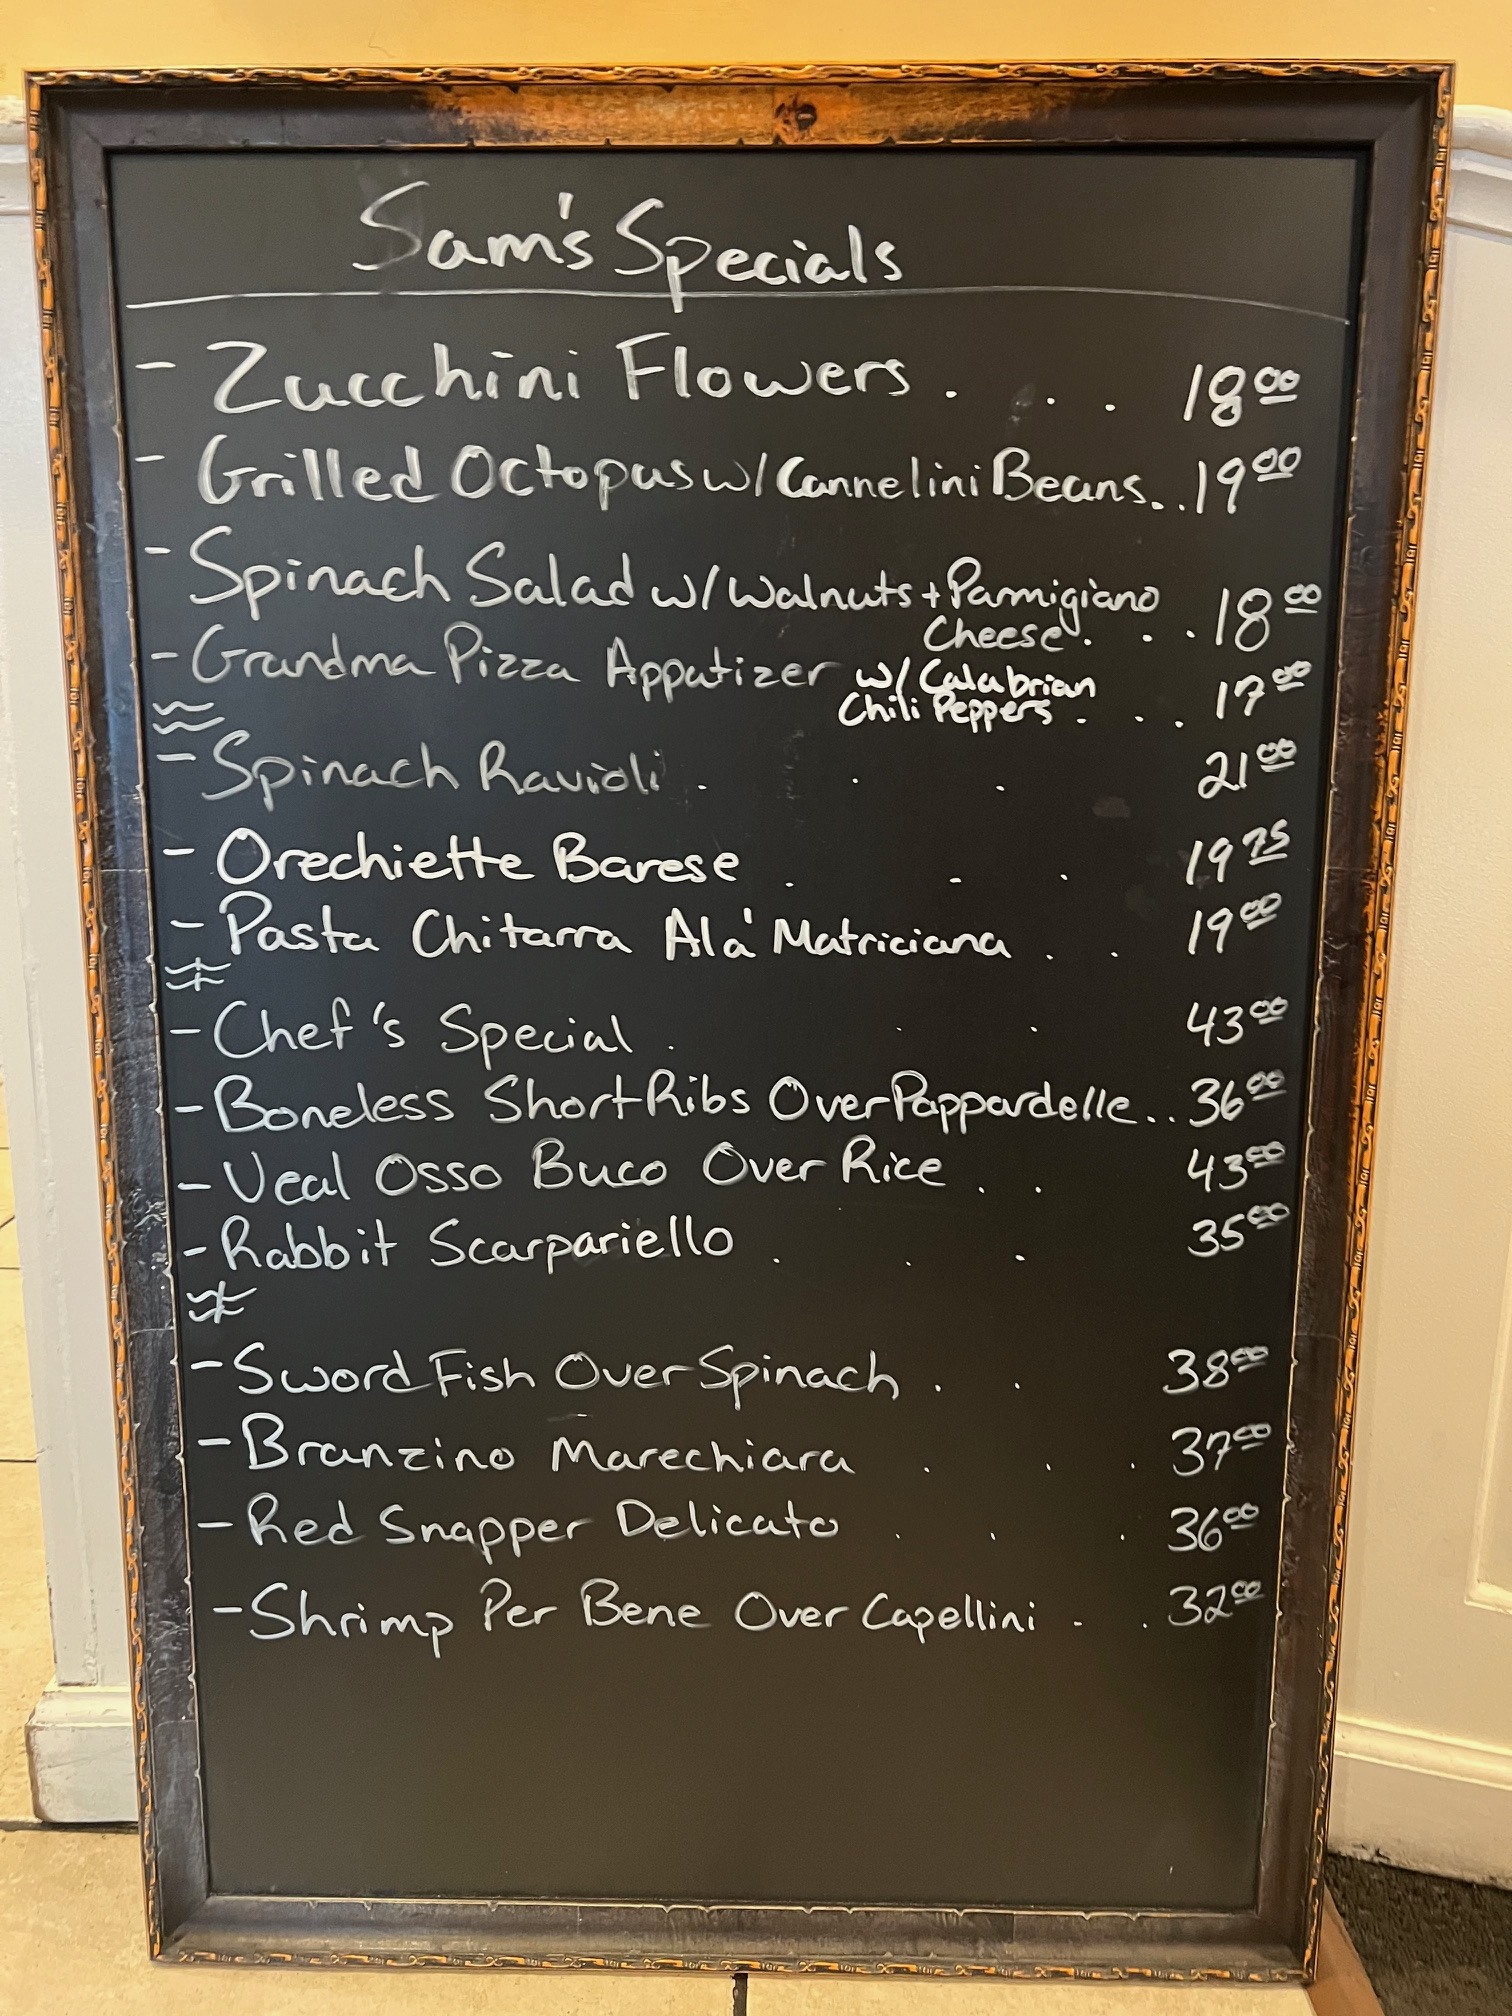 Sam's Specials
- Zucchini Flowers . . . 18.00
- Grilled Octopus w/ Cannelini Beans... 19.00
- Spinach Salad w/ Walnuts + Parmigiano
Cheese. . . 18.00
- Grandma Pizza Appatizer w/ Calabrian
Chili Peppers . . . 17.00
- Spinach Ravioli . . . 21.00
- Orechiette Barese . . . 19.75
- Pasta Chitarra Alá Matriciana . . 19.00
- Chef's Special . . . 43.00
- Boneless Short Ribs Over Pappardelle .. 36.00
- Veal Osso Buco Over Rice . . 43.00
- Rabbit Scarpariello . . . 35.00
- Sword Fish Over Spinach . . 38.00
- Branzino Marechiara . . . 37.00
- Red Snapper Delicato . . . 36.00
- Shrimp Per Bene Over Capellini . . 32.00